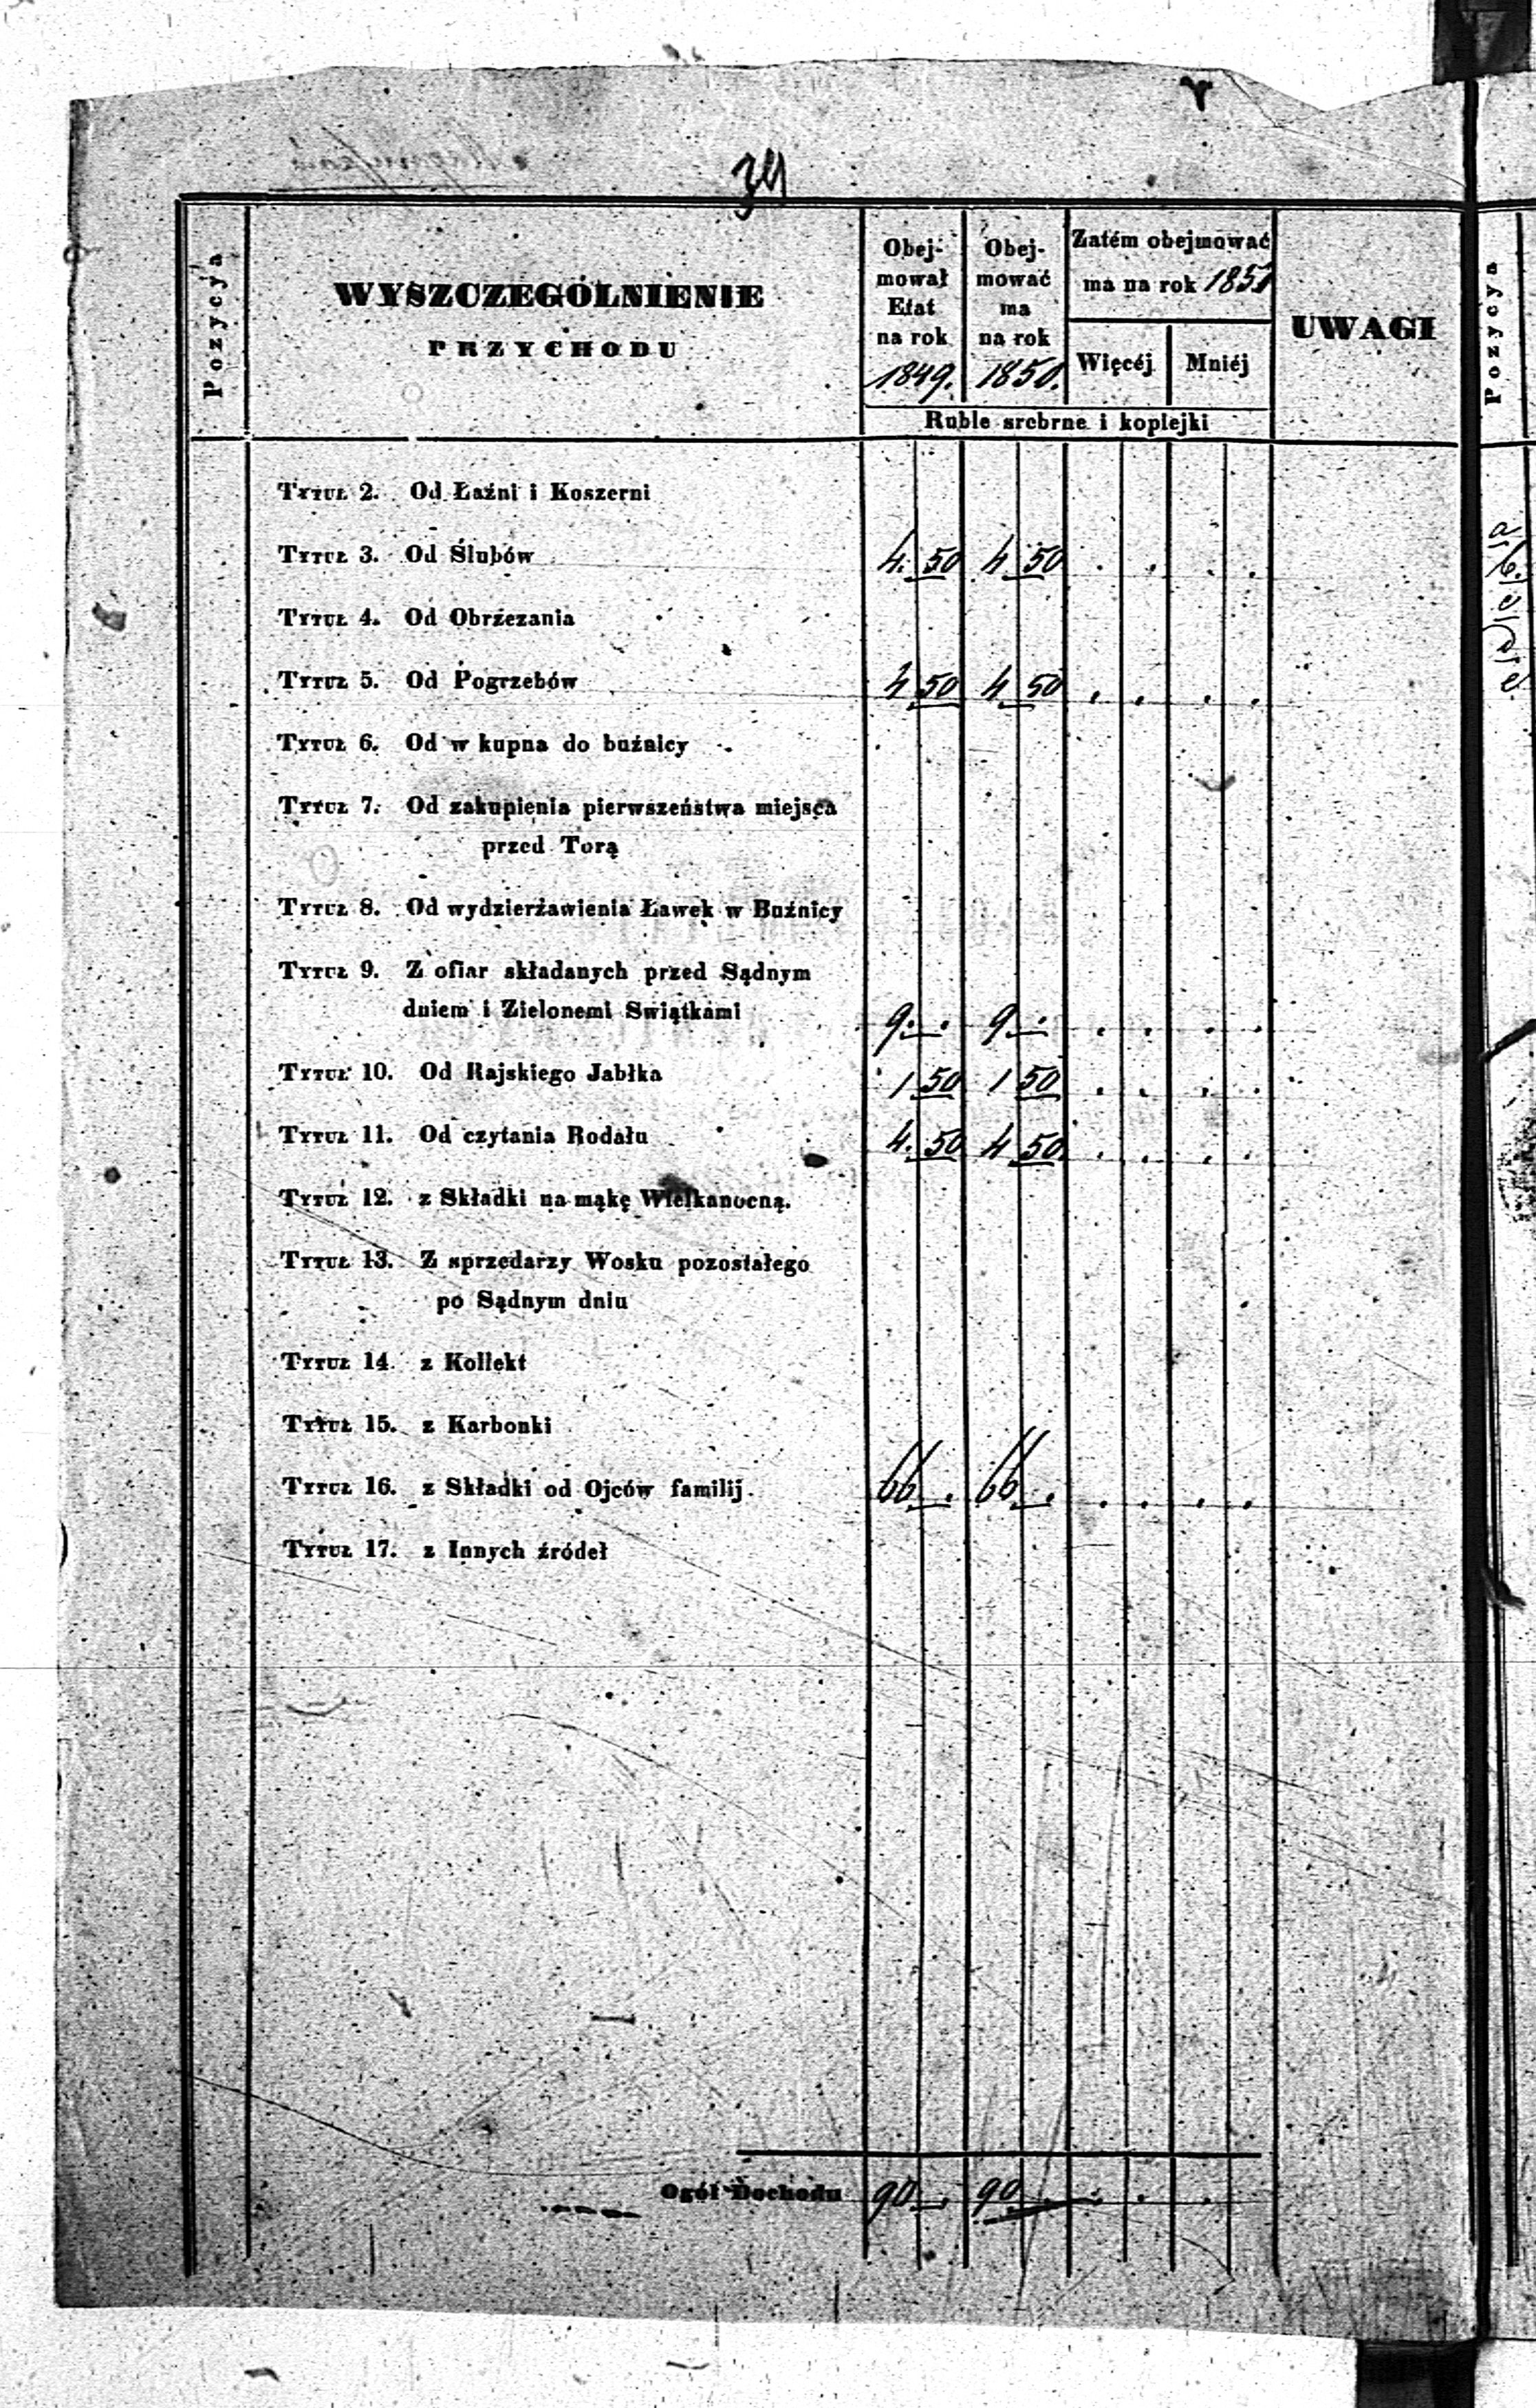 34
Pozycya
WYSZCZEGÓLNIENIE
PRZYCHODU
Obej-
mował
Etat
na rok
1849.
Obej-
mować
ma
na rok
1850.
Zatém obejmować
ma na rok 1850
Więcéj
Mniéj
Ruble srebrne i kopiejki
UWAGI
Pozycya
Tytuł 2. Od Łaźni i Koszerni
Tytuł 3. Od Ślubów 4. 50 4 50
Tytuł 4. Od Obrzezania
Tytuł 5. Od Pogrzebów 4 50 4 50
Tytuł 6. Od w kupna do buźnicy
Tytuł 7. Od zakupienia pierwszeństwa miejsca
przed Torą
Tytuł 8. Od wydzierżawienia Ławek w Buźnicy
Tytuł 9. Z ofiar składanych przed Sądnym
dniem i Zielonemi Swiątkami 9. — . 9 — .
Tytuł 10. Od Rajskiego Jabłka 1 50 1 50
Tytuł 11. Od czytania Rodału 4. 50 4 50
Tytuł 12. z Składki na mąkę Wielkanocną.
Tytuł 13. Z sprzedarzy Wosku pozostałego
po Sądnym dniu
Tytuł 14. z Kollekt
Tytuł 15. z Karbonki
Tytuł 16. z Składki od Ojców familij. 66 — . 66 — .
Tytuł 17. z Innych źródeł
Ogół Dochodu 90 — . 90